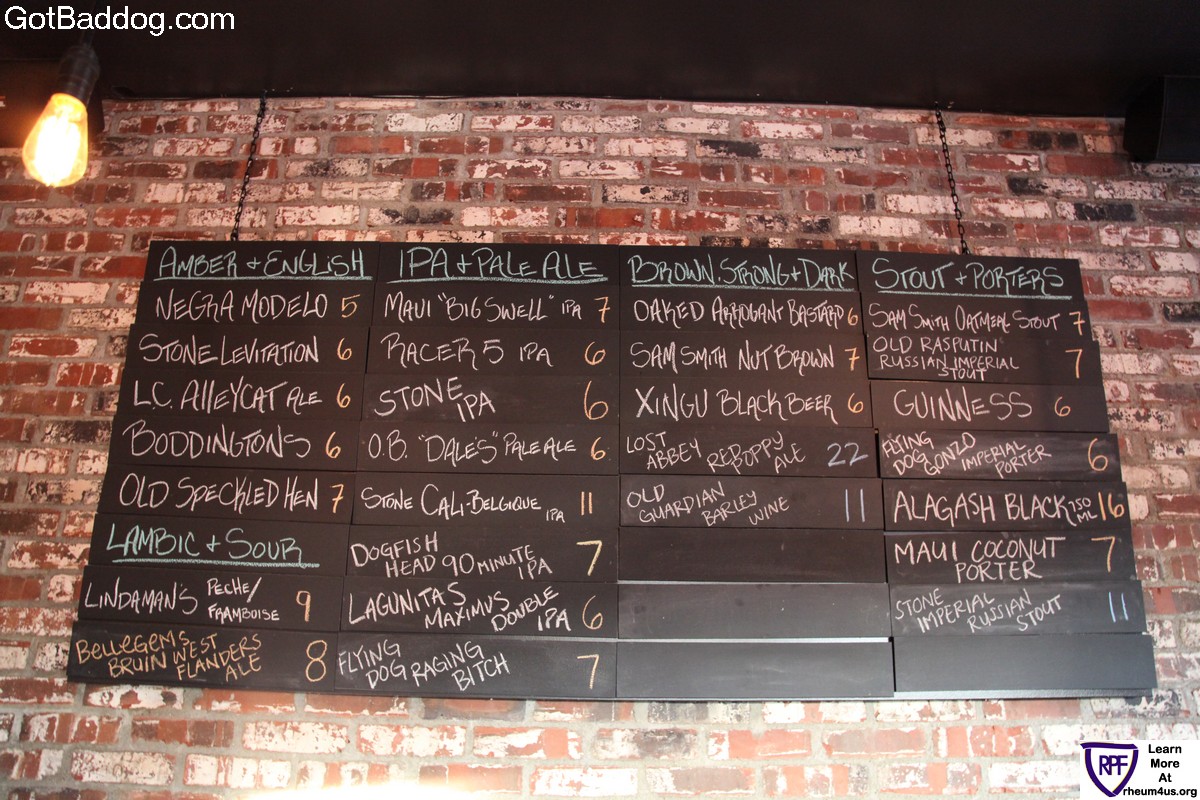 GotBaddog.com
AMBER + ENGLISH
NEGRA MODELO 5
STONE LEVITATION 6
L.C. ALLEYCAT ALE 6
BODDINGTONS 6
OLD SPECKLED HEN 7
LAMBIC + SOUR
LINDAMAN'S PECHE/
FRAMBOISE 9
BELLEGEMS
BRUIN WEST
FLANDERS
ALE 8
IPA + PALE ALE
MAUI "BIG SWELL" IPA 7
RACER 5 IPA 6
STONE
IPA 6
O.B. "DALE'S" PALE ALE 6
STONE CALI-BELGIQUE IPA 11
DOGFISH
HEAD 90 MINUTE
IPA 7
LAGUNITAS
MAXIMUS DOUBLE
IPA 6
FLYING
DOG RAGING
BITCH 7
BROWN STRONG + DARK
OAKED ARROGANT BASTARD 6
SAM SMITH NUT BROWN 7
XINGU BLACK BEER 6
LOST
ABBEY REDOPPY
ALE 22
OLD
GUARDIAN
BARLEY
WINE 11
STOUT + PORTERS
SAM SMITH OATMEAL STOUT 7
OLD RASPUTIN
RUSSIAN IMPERIAL
STOUT 7
GUINNESS 6
FLYING
DOG GONZO
IMPERIAL
PORTER 6
ALAGASH BLACK 750
ML 16
MAUI COCONUT
PORTER 7
STONE
IMPERIAL
RUSSIAN
STOUT 11
RPF
Learn
More
At
rheum4us.org